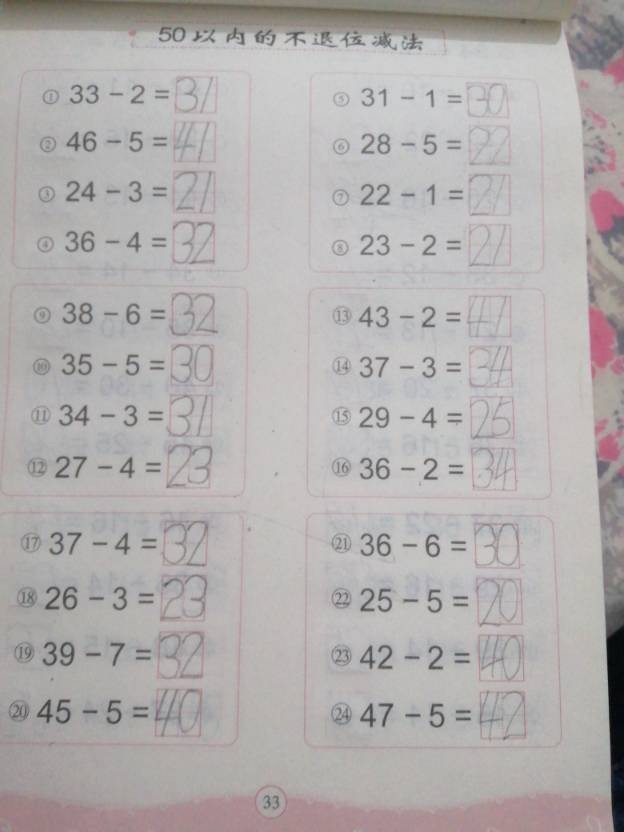 50以内的不退位减法
① 33 − 2 = 31
② 46 − 5 = 41
③ 24 − 3 = 21
④ 36 − 4 = 32
⑤ 31 − 1 = 30
⑥ 28 − 5 = 22
⑦ 22 − 1 = 21
⑧ 23 − 2 = 21
⑨ 38 − 6 = 32
⑩ 35 − 5 = 30
⑪ 34 − 3 = 31
⑫ 27 − 4 = 23
⑬ 43 − 2 = 41
⑭ 37 − 3 = 34
⑮ 29 − 4 = 25
⑯ 36 − 2 = 34
⑰ 37 − 4 = 32
⑱ 26 − 3 = 23
⑲ 39 − 7 = 32
⑳ 45 − 5 = 40
㉑ 36 − 6 = 30
㉒ 25 − 5 = 20
㉓ 42 − 2 = 40
㉔ 47 − 5 = 42
33